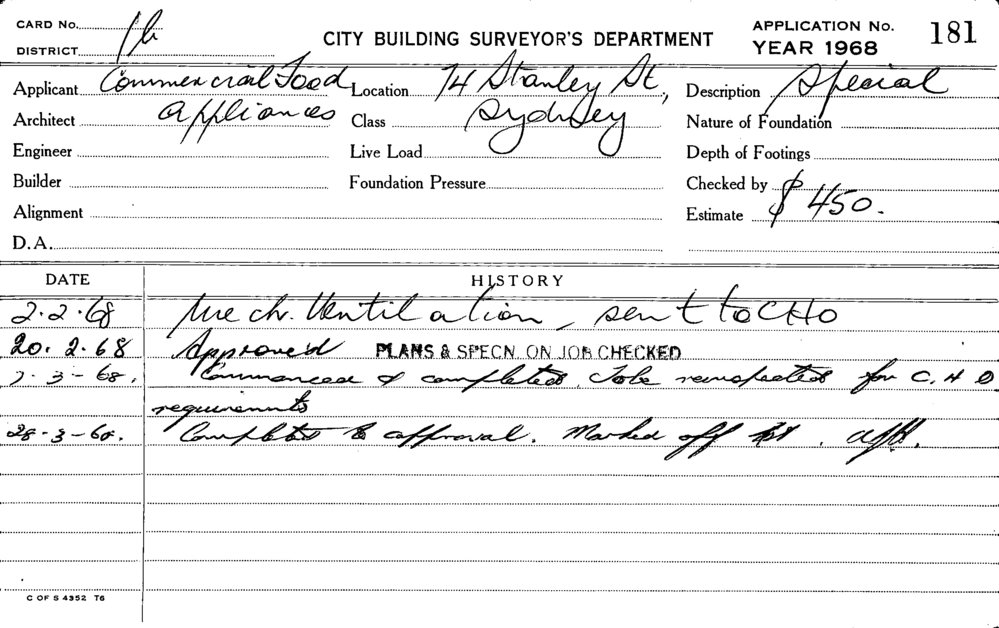 CARD No. 1b
DISTRICT
CITY BUILDING SURVEYOR'S DEPARTMENT
APPLICATION No. 181
YEAR 1968
Applicant Commercial Food Location 74 Stanley St., Description Special
Architect Appliances Class Sydney Nature of Foundation
Engineer Live Load Depth of Footings
Builder Foundation Pressure Checked by
Alignment Estimate $450.
D.A.
DATE HISTORY
2.2.68 Mech. Ventilation, sent to CHO
20.2.68 Approved PLANS & SPECN. ON JOB CHECKED
7-3-68. Commenced & completed. Job reinspected for C.H.O
requirements
28-3-68. Completed to approval. Marked off
C OF S 4352 T6